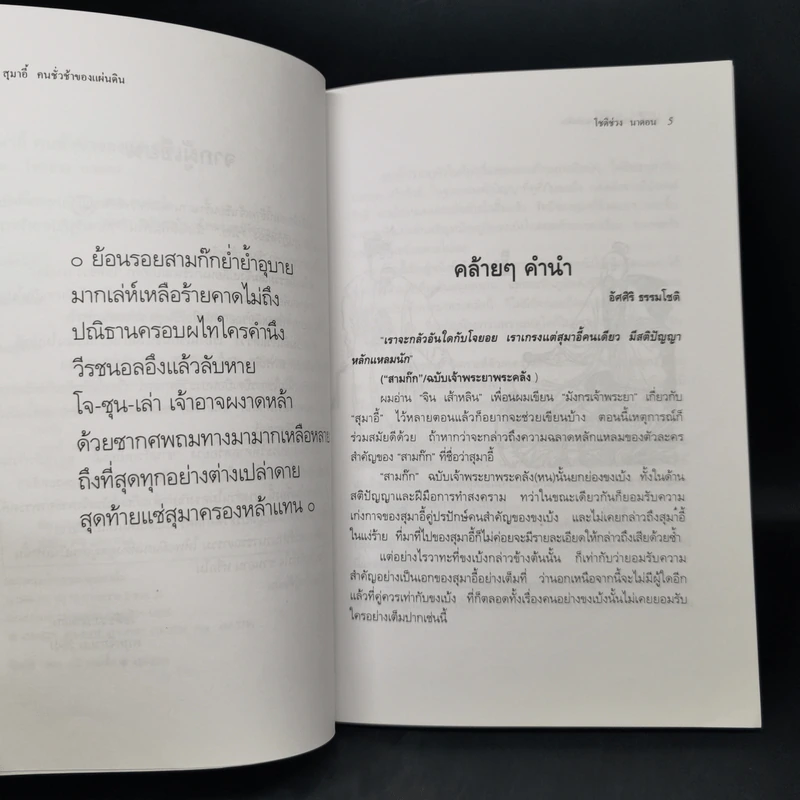 สุมาอี้ คนชั่วช้าของแผ่นดิน
๐ ย้อนรอยสามก๊กย่ำย้ำอุบาย
มากเล่ห์เหลือร้ายคาดไม่ถึง
ปณิธานครอบผไทใครคำนึง
วีรชนอลอึงแล้วลับหาย
โจ-ซุน-เล่า เจ้าอาจผงาดหล้า
ด้วยซากศพถมทางมามากเหลือหลาย
ถึงที่สุดทุกอย่างต่างเปล่าดาย
สุดท้ายแซ่สุมาครองหล้าแทน ๐
โชติช่วง นาดอน 5
คล้ายๆ คำนำ
อัศศิริ ธรรมโชติ
"เราจะกลัวอันใดกับโจยอย เราเกรงแต่สุมาอี้คนเดียว มีสติปัญญา
หลักแหลมนัก"
("สามก๊ก"/ฉบับเจ้าพระยาพระคลัง)
ผมอ่าน "จิน เส้าหลิน" เพื่อนผมเขียน "มังกรเจ้าพระยา" เกี่ยวกับ
"สุมาอี้" ไว้หลายตอนแล้วก็อยากจะช่วยเขียนบ้าง ตอนนี้เหตุการณ์ก็
ร่วมสมัยดีด้วย ถ้าหากว่าจะกล่าวถึงความฉลาดหลักแหลมของตัวละคร
สำคัญของ "สามก๊ก" ที่ชื่อว่าสุมาอี้
"สามก๊ก" ฉบับเจ้าพระยาพระคลัง(หน)นั้นยกย่องขงเบ้ง ทั้งในด้าน
สติปัญญาและฝีมือการทำสงคราม ทว่าในขณะเดียวกันก็ยอมรับความ
เก่งกาจของสุมาอี้คู่ปรปักษ์คนสำคัญของขงเบ้ง และไม่เคยกล่าวถึงสุมาอี้
ในแง่ร้าย ที่มาที่ไปของสุมาอี้ก็ไม่ค่อยจะมีรายละเอียดให้กล่าวถึงเสียด้วยซ้ำ
แต่อย่างไรวาทะที่ขงเบ้งกล่าวข้างต้นนั้น ก็เท่ากับว่ายอมรับความ
สำคัญอย่างเป็นเอกของสุมาอี้อย่างเต็มที่ ว่านอกเหนือจากนี้จะไม่มีผู้ใดอีก
แล้วที่คู่ควรเท่ากับขงเบ้ง ที่ก็ตลอดทั้งเรื่องคนอย่างขงเบ้งนั้นไม่เคยยอมรับ
ใครอย่างเต็มปากเช่นนี้